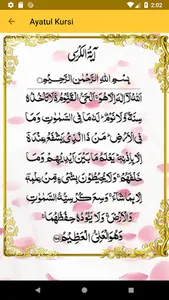 2:02
Ayatul Kursi
آيَةُ الْكُرْسِي
بِسْمِ اللهِ الرَّحْمٰنِ الرَّحِيْمِ
اَللهُ لَاۤ اِلٰهَ اِلَّا هُوَ اَلْحَيُّ الْقَيُّوْمُ لَا تَاْخُذُهٗ
سِنَةٌ وَّلَا نَوْمٌ لَهٗ مَا فِي السَّمٰوٰتِ وَمَا
فِي الْاَرْضِ مَنْ ذَا الَّذِيْ يَشْفَعُ عِنْدَهٗ
اِلَّا بِاِذْنِهٖ يَعْلَمُ مَا بَيْنَ اَيْدِيْهِمْ وَمَا
خَلْفَهُمْ وَلَا يُحِيْطُوْنَ بِشَيْءٍ مِّنْ عِلْمِهٖ
اِلَّا بِمَا شَآءَ وَسِعَ كُرْسِيُّهُ السَّمٰوٰتِ
وَالْاَرْضَ وَلَا يَئُوْدُهٗ حِفْظُهُمَا
وَهُوَ الْعَلِيُّ الْعَظِيْمُ